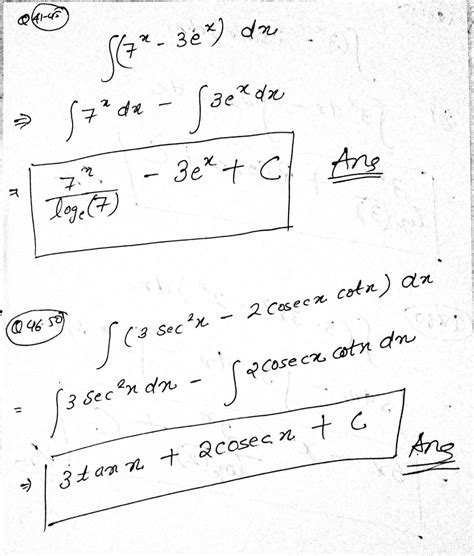 Q 41-45
∫(7ˣ - 3eˣ) dx
⇒ ∫7ˣ dx - ∫3eˣ dx
= 7ˣ/logₑ(7) - 3eˣ + C Ans
Q 46-50
∫(3 sec²x - 2 cosecx cotx) dx
= ∫3 sec²x dx - ∫2cosecx cotx dx
⇒ 3tanx + 2cosecx + C Ans